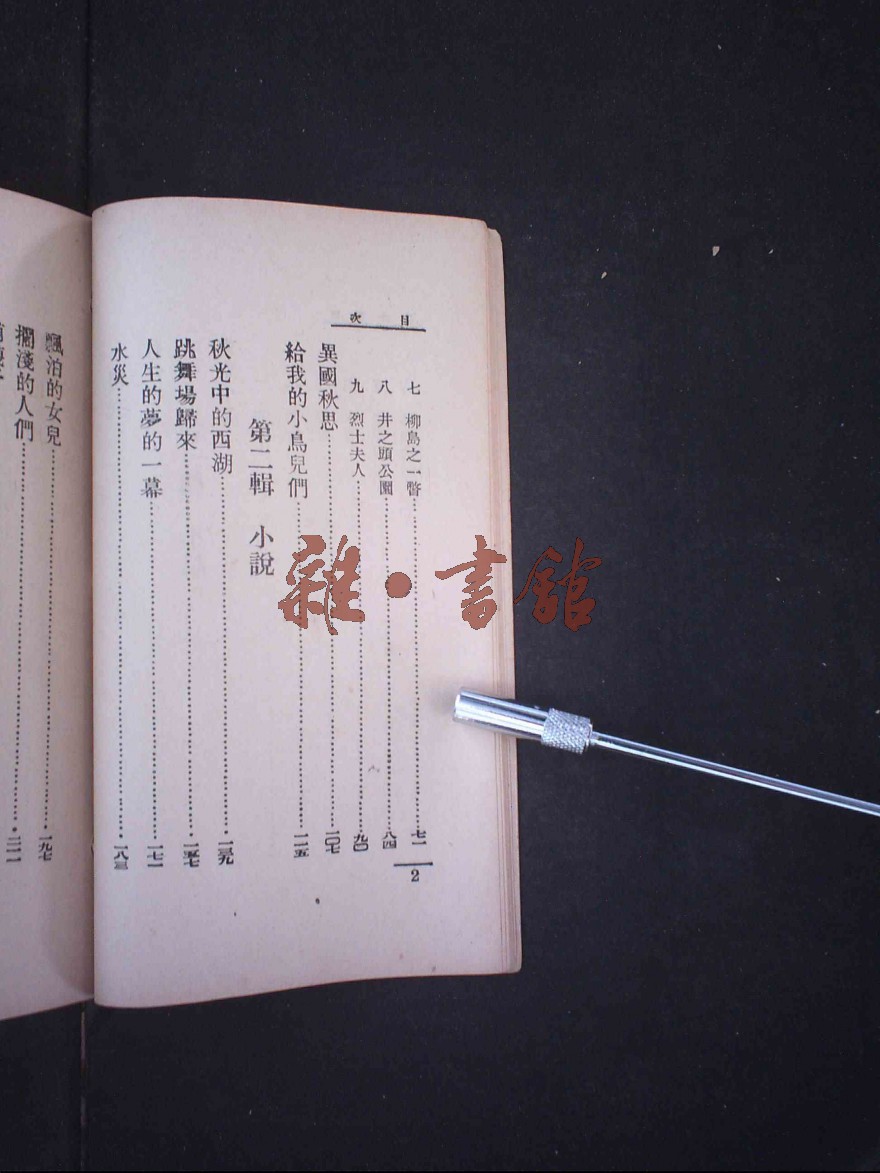 目次
七 柳島之一瞥 七一
八 井之頭公園 八四
九 烈士夫人 九〇
異國秋思 一〇七
給我的小鳥兒們 一一五
第二輯 小說
秋光中的西湖 一三九
跳舞場歸來 一五七
人生的夢的一幕 一七一
水災 一八三
2
飄泊的女兒 一九七
擱淺的人們 二一一
雜·書館